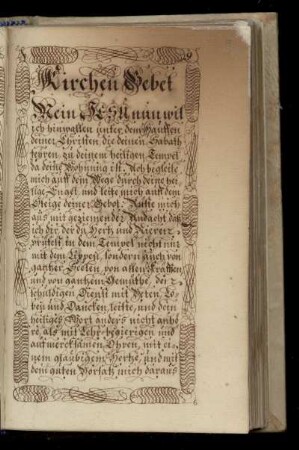 Kirchen Gebet
Mein JESU nun wil
ich hinwallen unter dem Hauffen
deiner Christen die deinen Sabath
feyren zu deinem heiligen Tempel
da deine Wohnung ist. Ach begleite
mich auff dem Wege durch deine hei-
lige Engel und leite mich auff dem
Steige deiner Gebot: Rüste mich
aus mit geziemender Andacht daß
ich dir der du Hertz und Nieren
prüfest in dem Tempel nicht nur
mit den Lippen, sondern auch von
gantzer Seelen von allen Kräfften
und von gantzem Gemüthe, den
schuldigen Dienst mit Beten Lo-
ben und Dancken leiste, und dein
heiliges Wort anders nicht anhö-
re als mit Lehr-begierigen und
aufmercksamen Ohren, mit ei-
nem gläubigem Hertze, und mit
dem guten Vorsatz mich daraus